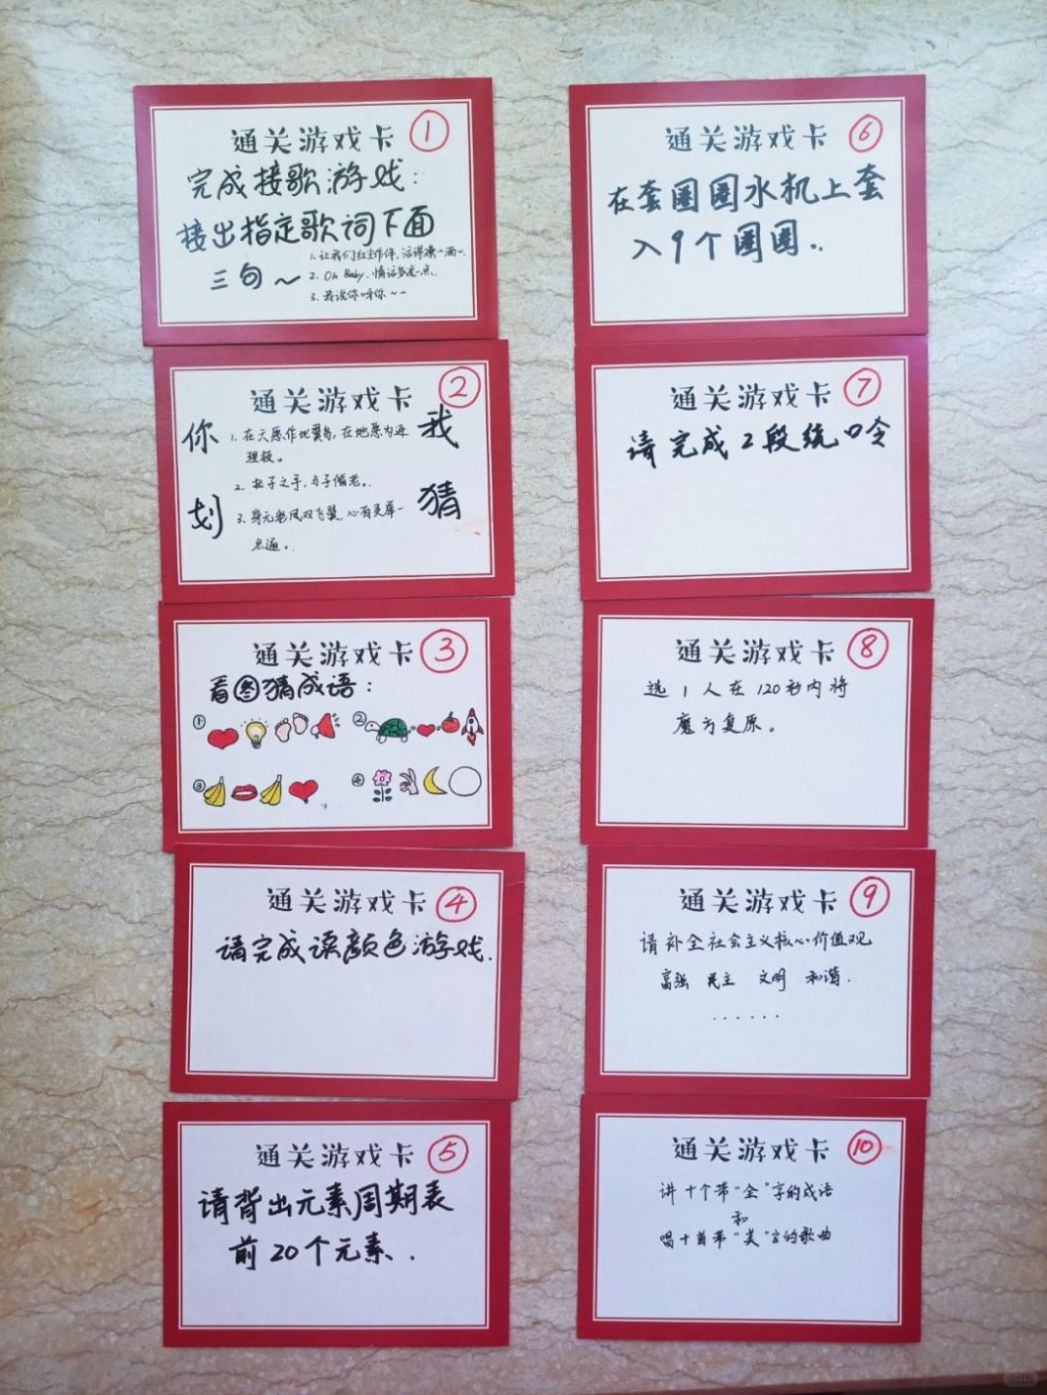 通关游戏卡 ①
完成接歌游戏:
接出指定歌词下面
三句～
1. 让我们红尘作伴,活得潇洒..
2. Oh Baby, 情话多说一点、
3. 我说你呀你～～
通关游戏卡 ②
你划我猜
1. 在天愿作比翼鸟,在地愿为连
理枝。
2. 执子之手,与子偕老。
3. 身无彩凤双飞翼,心有灵犀一
点通。
通关游戏卡 ③
看图猜成语:
①
②
③
④
通关游戏卡 ④
请完成读颜色游戏.
通关游戏卡 ⑤
请背出元素周期表
前20个元素..
通关游戏卡 ⑥
在套圈圈水机上套
入9个圈圈..
通关游戏卡 ⑦
请完成2段绕口令
通关游戏卡 ⑧
选1人在120秒内将
魔方复原。
通关游戏卡 ⑨
请补全社会主义核心价值观
富强 民主 文明 和谐.
......
通关游戏卡 ⑩
讲十个带"全"字的成语
和
唱十首带"美"字的歌曲